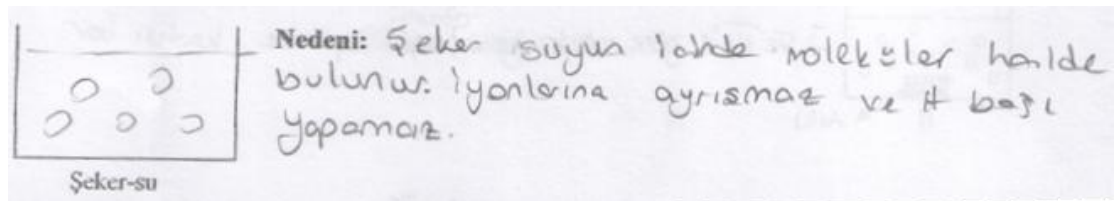 Nedeni: Şeker suyun içinde moleküler halde
bulunur. İyonlarına ayrışmaz ve H bağı
yapamaz.
Şeker-su